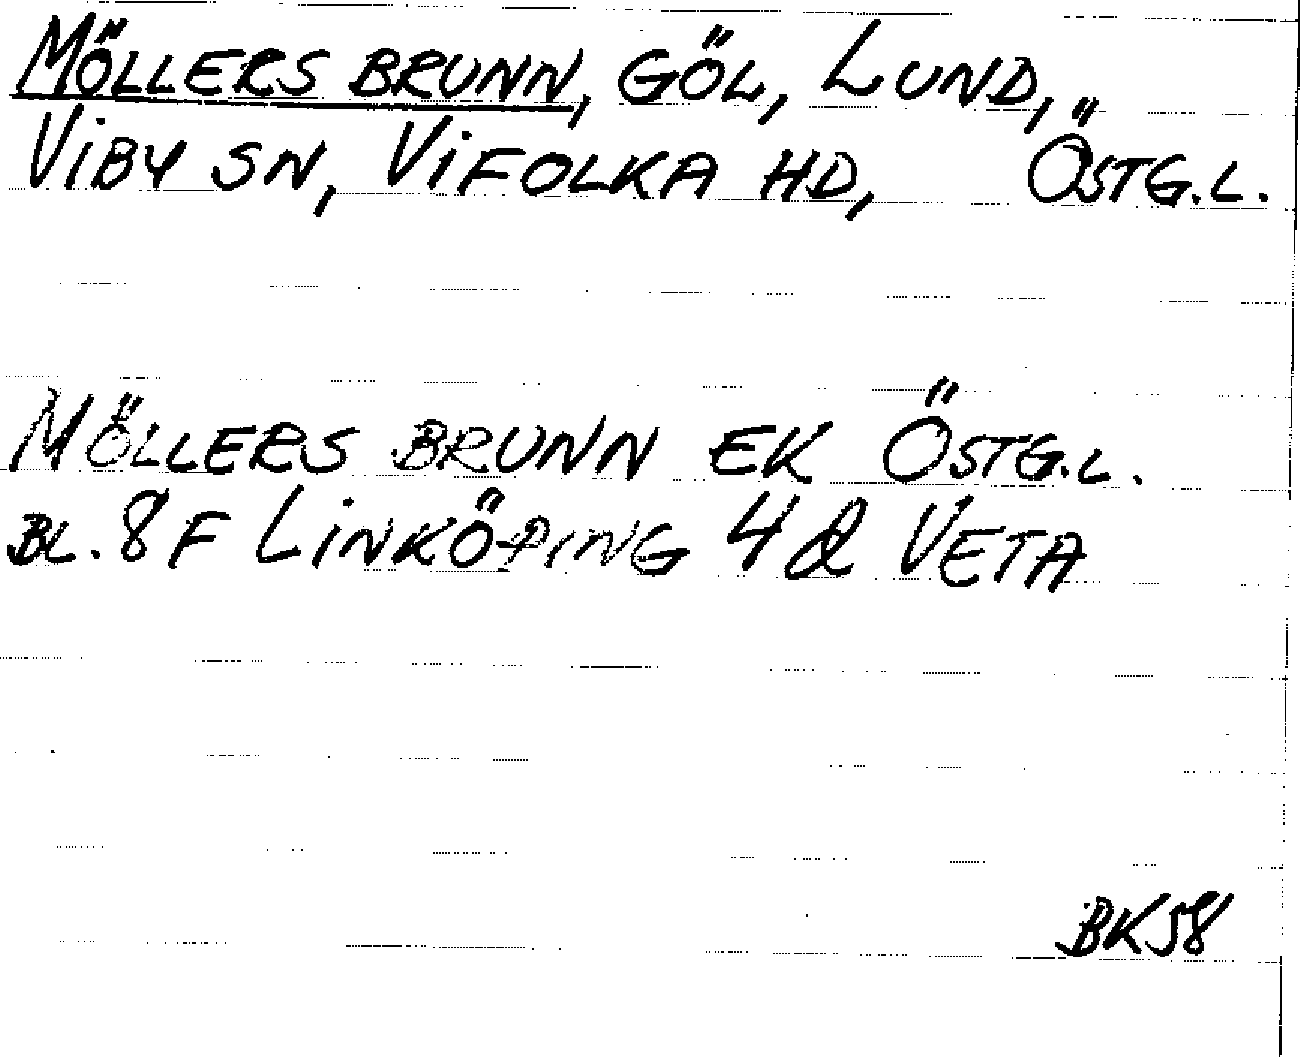 MÖLLERS BRUNN, GÖL, LUND,
VIBY SN, VIFOLKA HD, ÖSTG.L.
MÖLLERS BRUNN EK ÖSTG.L.
BL. 8F LINKÖPING 4 d VETA
BK58